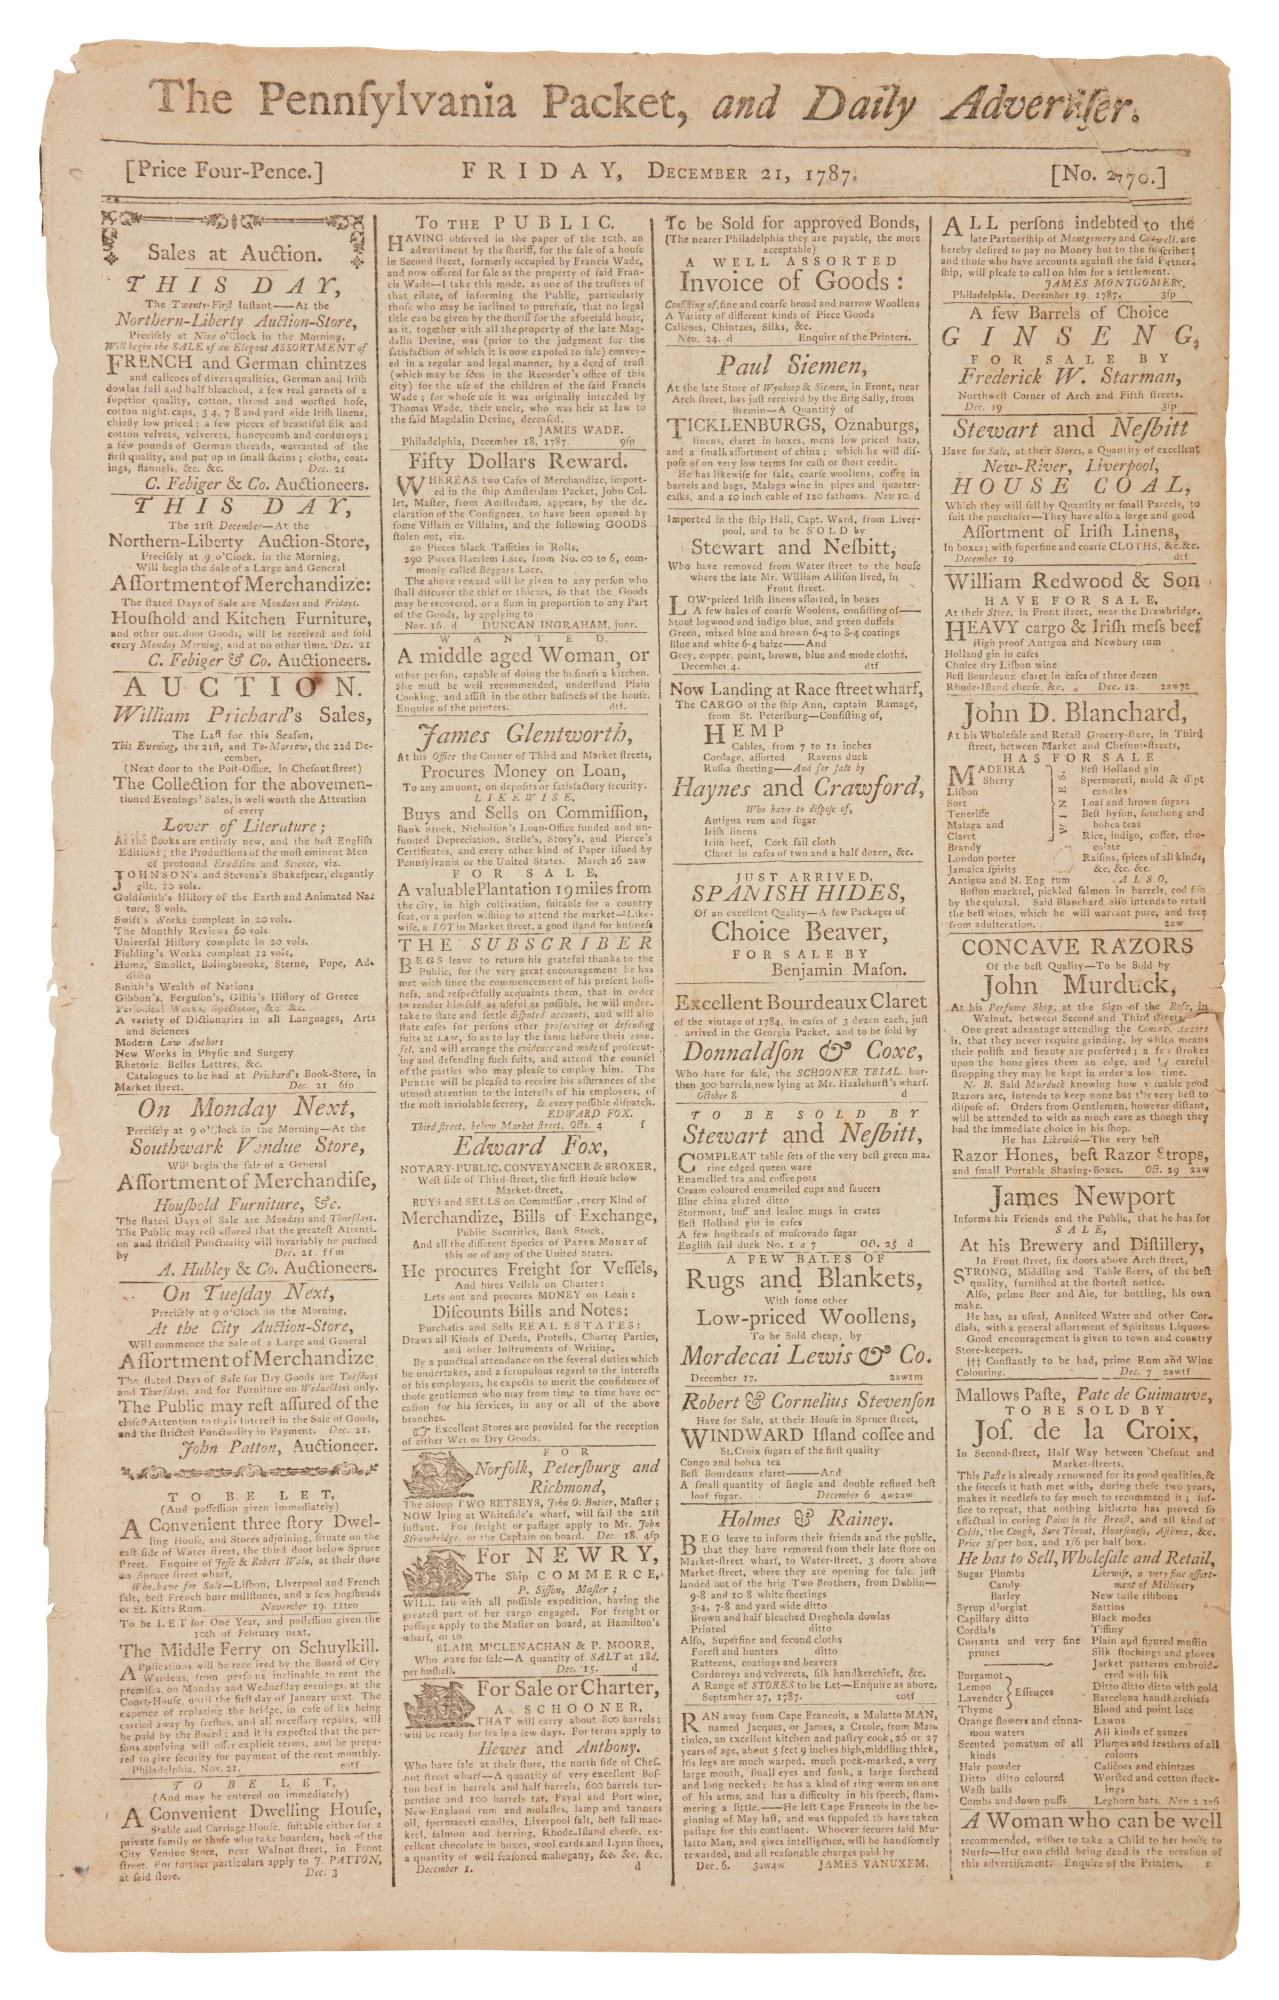 The Pennſylvania Packet, and Daily Advertiſer.
[Price Four-Pence.]
FRIDAY, December 21, 1787.
[No. 2770.]
Sales at Auction.
THIS DAY,
The Twenty-Firſt Inſtant——At the
Northern-Liberty Auction-Store,
Preciſely at Nine o'Clock in the Morning,
Will begin the SALE of an Elegant ASSORTMENT of
FRENCH and German chintzes
and calicoes of divers qualities, German and Iriſh
dowlas full and half bleached, a few real garnets of a
ſuperior quality, cotton, thread and worſted hoſe,
cotton night-caps, 3 4, 7 8 and yard wide Iriſh linens,
chiefly low priced; a few pieces of beautiful ſilk and
cotton velvets, velverets, honeycomb and corduroys;
a few pounds of German threads, warranted of the
firſt quality, and put up in ſmall ſkeins; cloths, coat-
ings, flannels, &c. &c. Dec. 21
C. Febiger & Co. Auctioneers.
THIS DAY,
The 21ſt December—At the
Northern-Liberty Auction-Store,
Preciſely at 9 o'Clock, in the Morning,
Will begin the Sale of a Large and General
Aſſortment of Merchandize:
The ſtated Days of Sale are Mondays and Fridays.
Houſhold and Kitchen Furniture,
and other out-door Goods, will be received and ſold
every Monday Morning, and at no other time. Dec. 21
C. Febiger & Co. Auctioneers.
AUCTION.
William Prichard's Sales,
The Laſt for this Seaſon,
This Evening, the 21ſt, and To-Morrow, the 22d De-
cember,
(Next door to the Poſt-Office, in Cheſnut ſtreet)
The Collection for the abovemen-
tioned Evenings' Sales, is well worth the Attention
of every
Lover of Literature;
As the Books are entirely new, and the beſt Engliſh
Editions; the Productions of the moſt eminent Men
of profound Erudition and Science, viz.
JOHNSON's and Stevens's Shakeſpear, elegantly
gilt, 10 vols.
Goldſmith's Hiſtory of the Earth and Animated Na-
ture, 8 vols.
Swift's Works compleat in 20 vols.
The Monthly Reviews 60 vols.
Univerſal Hiſtory complete in 20 vols.
Fielding's Works compleat 12 vols.
Hume, Smollet, Bolingbroke, Sterne, Pope, Ad-
diſon
Smith's Wealth of Nations
Gibbon's, Ferguſon's, Gillis's Hiſtory of Greece
Periodical Works, Spectator, &c. &c.
A variety of Dictionaries in all Languages, Arts
and Sciences
Modern Law Authors
New Works in Phyſic and Surgery
Rhetoric, Belles Lettres, &c.
Catalogues to be had at Prichard's Book-Store, in
Market ſtreet. Dec. 21 6ſp
On Monday Next,
Preciſely at 9 o'Clock in the Morning—At the
Southwark Vendue Store,
Will begin the ſale of a General
Aſſortment of Merchandiſe,
Houſhold Furniture, &c.
The ſtated Days of Sale are Mondays and Thurſdays.
The Public may reſt aſſured that the greateſt Attenti-
on and ſtricteſt Punctuality will invariably be purſued
by Dec. 21. ffm
A. Hubley & Co. Auctioneers.
On Tueſday Next,
Preciſely at 9 o'Clock in the Morning,
At the City Auction-Store,
Will commence the Sale of a Large and General
Aſſortment of Merchandize
The ſtated Days of Sale for Dry Goods are Tueſdays
and Thurſdays, and for Furniture on Wedneſdays only.
The Public may reſt aſſured of the
cloſeſt Attention to their Intereſt in the Sale of Goods,
and the ſtricteſt Punctuality in Payment. Dec. 21.
John Patton, Auctioneer.
TO BE LET,
(And poſſeſſion given immediately)
A Convenient three ſtory Dwel-
ling Houſe, and Stores adjoining, ſituate on the
eaſt ſide of Water ſtreet, the third door below Spruce
ſtreet. Enquire of Jeſſe & Robert Waln, at their ſtore
on Spruce ſtreet wharf,
Who have for Sale—Liſbon, Liverpool and French
ſalt, beſt French burr millſtones, and a few hogſheads
of St. Kitts Rum. November 19. 11teo
To be LET for One Year, and poſſeſſion given the
10th of February next,
The Middle Ferry on Schuylkill.
APplications will be received by the Board of City
Wardens, from perſons inclinable to rent the
premiſes, on Monday and Wedneſday evenings, at the
Court-Houſe, until the firſt day of January next. The
expence of replacing the bridge, in caſe of its being
carried away by freſhes, and all neceſſary repairs, will
be paid by the Board; and it is expected that the per-
ſons applying will offer explicit terms, and be prepa-
red to give ſecurity for payment of the rent monthly.
Philadelphia, Nov. 21. eotf
TO BE LET,
(And may be entered on immediately)
A Convenient Dwelling Houſe,
Stable and Carriage Houſe, ſuitable either for a
private family or thoſe who take boarders, back of the
City Vendue Store, near Walnut ſtreet, in Front
ſtreet. For further particulars apply to J. PATTON,
at ſaid ſtore. Dec. 3
To the PUBLIC.
HAVING obſerved in the paper of the 10th, an
advertiſment by the ſheriff, for the ſale of a houſe
in Second ſtreet, formerly occupied by Francis Wade,
and now offered for ſale as the property of ſaid Fran-
cis Wade—I take this mode, as one of the truſtees of
that eſtate, of informing the Public, particularly
thoſe who may be inclined to purchaſe, that no legal
title can be given by the ſheriff for the aforeſaid houſe,
as it, together with all the property of the late Mag-
dalin Devine, was (prior to the judgment for the
ſatisfaction of which it is now expoſed to ſale) convey-
ed in a regular and legal manner, by a deed of truſt
(which may be ſeen in the Recorder's office of this
city) for the uſe of the children of the ſaid Francis
Wade; for whoſe uſe it was originally intended by
Thomas Wade, their uncle, who was heir at law to
the ſaid Magdalin Devine, deceaſed.
JAMES WADE.
Philadelphia, December 18, 1787. 9ſp
Fifty Dollars Reward.
WHEREAS two Caſes of Merchandize, import-
ed in the ſhip Amſterdam Packet, John Col-
let, Maſter, from Amſterdam, appears, by the de-
claration of the Conſignees, to have been opened by
ſome Villain or Villains, and the following GOODS
ſtolen out, viz.
20 Pieces black Taffities in Rolls,
290 Pieces Haerlem Lace, from No. 00 to 6, com-
monly called Beggars Lace.
The above reward will be given to any perſon who
ſhall diſcover the thief or thieves, ſo that the Goods
may be recovered, or a Sum in proportion to any Part
of the Goods, by applying to
Nov. 16. d DUNCAN INGRAHAM, junr.
WANTED,
A middle aged Woman, or
other perſon, capable of doing the buſineſs a kitchen.
She muſt be well recommended, underſtand Plain
Cooking, and aſſiſt in the other buſineſs of the houſe.
Enquire of the printers. dtf.
James Glentworth,
At his Office the Corner of Third and Market ſtreets,
Procures Money on Loan,
To any amount, on depoſits or ſatisfactory ſecurity.
LIKEWISE,
Buys and Sells on Commiſſion,
Bank Stock, Nicholſon's Loan-Office funded and un-
funded Depreciation, Steile's, Story's, and Pierce's
Certificates, and every other kind of Paper iſſued by
Pennſylvania or the United States. March 26 2aw
FOR SALE,
A valuable Plantation 19 miles from
the city, in high cultivation, ſuitable for a country
ſeat, or a perſon wiſhing to attend the market—Like-
wiſe, a LOT in Market ſtreet, a good ſtand for buſineſs
THE SUBSCRIBER
BEGS leave to return his grateful thanks to the
Public, for the very great encouragement he has
met with ſince the commencement of his preſent buſi-
neſs, and reſpectfully acquaints them, that in order
to render himſelf as uſeful as poſſible, he will under-
take to ſtate and ſettle diſputed accounts, and will alſo
ſtate caſes for perſons either proſecuting or defending
ſuits at LAW, ſo as to lay the ſame before their coun-
ſel, and will arrange the evidence and mode of proſecut-
ing and defending ſuch ſuits, and attend the counſel
of the parties who may pleaſe to employ him. The
Public will be pleaſed to receive his aſſurances of the
utmoſt attention to the intereſts of his employers, of
the moſt inviolable ſecrecy, & every poſſible diſpatch.
EDWARD FOX.
Third ſtreet, below Market ſtreet, Octo. 4 f
Edward Fox,
NOTARY-PUBLIC, CONVEYANCER & BROKER,
Weſt ſide of Third-ſtreet, the firſt Houſe below
Market-ſtreet,
BUYS and SELLS on Commiſſion, every Kind of
Merchandize, Bills of Exchange,
Public Securities, Bank Stock,
And all the different Species of Paper Money of
this or of any of the United States.
He procures Freight for Veſſels,
And hires Veſſels on Charter:
Lets out and procures MONEY on Loan:
Diſcounts Bills and Notes:
Purchaſes and Sells REAL ESTATES:
Draws all Kinds of Deeds, Proteſts, Charter Parties,
and other Inſtruments of Writing.
By a punctual attendance on the ſeveral duties which
he undertakes, and a ſcrupulous regard to the intereſts
of his employers, he expects to merit the confidence of
thoſe gentlemen who may from time to time have oc-
caſion for his ſervices, in any or all of the above
branches.
☞ Excellent Stores are provided for the reception
of either Wet or Dry Goods.
FOR
Norfolk, Peterſburg and
Richmond,
The Sloop TWO BETSEYS, John O. Butler, Maſter;
NOW lying at Whiteſide's wharf, will ſail the 21ſt
inſtant. For freight or paſſage apply to Mr. John
Strawbridge, or the Captain on board. Dec. 18. 4ſp
For NEWRY,
The Ship COMMERCE,
P. Siſſon, Maſter;
WILL ſail with all poſſible expedition, having the
greateſt part of her cargo engaged. For freight or
paſſage apply to the Maſter on board, at Hamilton's
wharf, or to
BLAIR M'CLENACHAN & P. MOORE,
Who have for ſale—A quantity of SALT at 18d.
per buſhell. Dec. 15. d
For Sale or Charter,
A SCHOONER,
THAT will carry about 800 barrels;
will be ready for ſea in a few days. For terms apply to
Hewes and Anthony.
Who have for ſale at their ſtore, the north ſide of Cheſ-
nut ſtreet wharf—A quantity of very excellent Boſ-
ton beef in barrels and half barrels, 600 barrels tur-
pentine and 100 barrels tar, Fayal and Port wine,
New-England rum and molaſſes, lamp and tanners
oil, ſpermaceti candles, Liverpool ſalt, beſt fall mac-
krel, ſalmon and herring, Rhode-Iſland cheeſe, ex-
cellent chocolate in boxes, wool cards and Lynn ſhoes,
a quantity of well ſeaſoned mahogany, &c. &c. &c.
December 1. d
To be Sold for approved Bonds,
(The nearer Philadelphia they are payable, the more
acceptable)
A WELL ASSORTED
Invoice of Goods:
Conſiſting of, fine and coarſe broad and narrow Woollens
A Variety of different kinds of Piece Goods
Calicoes, Chintzes, Silks, &c.
Nov. 24. d Enquire of the Printers.
Paul Siemen,
At the late Store of Wynkoop & Siemen, in Front, near
Arch ſtreet, has juſt received by the Brig Sally, from
Bremin—A Quantity of
TICKLENBURGS, Oznaburgs,
linens, claret in boxes, mens low priced hats,
and a ſmall aſſortment of china; which he will diſ-
poſe of on very low terms for caſh or ſhort credit.
He has likewiſe for ſale, coarſe woollens, coffee in
barrels and bags, Malaga wine in pipes and quarter-
caſks, and a 10 inch cable of 120 fathoms. Nov 10. d
Imported in the ſhip Hall, Capt. Ward, from Liver-
pool, and to be SOLD by
Stewart and Neſbitt,
Who have removed from Water ſtreet to the houſe
where the late Mr. William Alliſon lived, in
Front ſtreet.
LOW-priced Iriſh linens aſſorted, in boxes
A few bales of coarſe Woolens, conſiſting of——
Stout logwood and indigo blue, and green duffels
Green, mixed blue and brown 6-4 to 8-4 coatings
Blue and white 6-4 baize——And
Grey, copper, point, brown, blue and mode cloths.
December 4. dtf
Now Landing at Race ſtreet wharf,
The CARGO of the ſhip Ann, captain Ramage,
from St. Peterſburg—Conſiſting of,
HEMP
Cables, from 7 to 11 inches
Cordage, aſſorted Ravens duck
Ruſſia ſheeting—And for ſale by
Haynes and Crawford,
Who have to diſpoſe of,
Antigua rum and ſugar
Iriſh linens
Iriſh beef, Cork ſail cloth
Claret in caſes of two and a half dozen, &c.
JUST ARRIVED,
SPANISH HIDES,
Of an excellent Quality—A few Packages of
Choice Beaver,
FOR SALE BY
Benjamin Maſon.
Excellent Bourdeaux Claret
of the vintage of 1784, in caſes of 3 dozen each, juſt
arrived in the Georgia Packet, and to be ſold by
Donnaldſon & Coxe,
Who have for ſale, the SCHOONER TRIAL, bur-
then 300 barrels, now lying at Mr. Hazlehurſt's wharf.
October 8 d
TO BE SOLD BY
Stewart and Neſbitt,
COMPLEAT table ſets of the very beſt green ma-
rine edged queen ware
Enamelled tea and coffee pots
Cream coloured enamelled cups and ſaucers
Blue china glazed ditto
Stormont, buff and lealoc mugs in crates
Beſt Holland gin in caſes
A few hogſheads of muſcovado ſugar
Engliſh ſail duck No. 1 a 7 Oct. 25 d
A FEW BALES OF
Rugs and Blankets,
With ſome other
Low-priced Woollens,
To be Sold cheap, by
Mordecai Lewis & Co.
December 17. 2aw1m
Robert & Cornelius Stevenſon
Have for Sale, at their Houſe in Spruce ſtreet,
WINDWARD Iſland coffee and
St. Croix ſugars of the firſt quality
Congo and bohea tea
Beſt Bourdeaux claret——And
A ſmall quantity of ſingle and double refined beſt
loaf ſugar. December 6 4w2aw
Holmes & Rainey.
BEG leave to inform their friends and the public,
that they have removed from their late ſtore on
Market-ſtreet wharf, to Water-ſtreet, 3 doors above
Market-ſtreet, where they are opening for ſale, juſt
landed out of the brig Two Brothers, from Dublin—
9-8 and 10 8 white ſheetings
3-4, 7-8 and yard wide ditto
Brown and half bleached Drogheda dowlas
Printed ditto
Alſo, Superfine and ſecond cloths
Foreſt and hunters ditto
Ratteens, coatings and beavers
Corduroys and velverets, ſilk handkerchiefs, &c.
A Range of STORES to be Let—Enquire as above.
September 27, 1787. eotf
RAN away from Cape Francois, a Mulatto MAN,
named Jacques, or James, a Creole, from Mar-
tinico, an excellent kitchen and paſtry cook, 26 or 27
years of age, about 5 feet 9 inches high, middling thick,
his legs are much warped, much pock-marked, a very
large mouth, ſmall eyes and ſunk, a large forehead
and long necked; he has a kind of ring worm on one
of his arms, and has a difficulty in his ſpeech, ſtam-
mering a little.——He left Cape Francois in the be-
ginning of May laſt, and was ſuppoſed to have taken
paſſage for this continent. Whoever ſecures ſaid Mu-
latto Man, and gives intelligence, will be handſomely
rewarded, and all reaſonable charges paid by
Dec. 6. 3w4w JAMES VANUXEM.
ALL perſons indebted to the
late Partnerſhip of Montgomery and Caldwell, are
hereby deſired to pay no Money but to the ſubſcriber;
and thoſe who have accounts againſt the ſaid Partner-
ſhip, will pleaſe to call on him for a ſettlement.
JAMES MONTGOMERY.
Philadelphia, December 19. 1787. 3ſp
A few Barrels of Choice
GINSENG,
FOR SALE BY
Frederick W. Starman,
Northweſt Corner of Arch and Fifth ſtreets.
Dec. 19 3ſp
Stewart and Neſbitt
Have for Sale, at their Stores, a Quantity of excellent
New-River, Liverpool,
HOUSE COAL,
Which they will ſell by Quantity or ſmall Parcels, to
ſuit the purchaſer—They have alſo a large and good
Aſſortment of Iriſh Linens,
In boxes; with ſuperfine and coarſe CLOTHS, &c. &c.
December 19. dtf
William Redwood & Son
HAVE FOR SALE,
At their Store, in Front ſtreet, near the Drawbridge,
HEAVY cargo & Iriſh meſs beef
High proof Antigua and Newbury rum
Holland gin in caſes
Choice dry Liſbon wine
Beſt Bourdeaux claret in caſes of three dozen
Rhode-Iſland cheeſe, &c. Dec. 12. 2aw7t
John D. Blanchard,
At his Wholeſale and Retail Grocery-ſtore, in Third
ſtreet, between Market and Cheſnut-ſtreets,
HAS FOR SALE
MADEIRA
Sherry
Liſbon
Sort
Teneriffe
Malaga and
Claret
WINES.
Brandy
London porter
Jamaica ſpirits
Antigua and N. Eng rum
Beſt Holland gin
Spermaceti, mold & dipt
candles
Loaf and brown ſugars
Beſt hyſon, ſouchong and
bohea teas
Rice, indigo, coffee, cho-
colate
Raiſins, ſpices of all kinds,
&c, &c. &c.
ALSO,
Boſton mackrel, pickled ſalmon in barrels, cod fiſh
by the quintal. Said Blanchard alſo intends to retail
the beſt wines, which he will warrant pure, and free
from adulteration. 2aw
CONCAVE RAZORS
Of the beſt Quality—To be Sold by
John Murduck,
At his Perfume Shop, at the Sign of the Roſe, in
Walnut, between Second and Third ſtreets.
One great advantage attending the Concave Razors
is, that they never require grinding, by which means
their poliſh and beauty are preſerved; a few ſtrokes
upon the hone gives them an edge, and by careful
ſtropping they may be kept in order a long time.
N. B. Said Murduck knowing how valuable good
Razors are, intends to keep none but the very beſt to
diſpoſe of. Orders from Gentlemen, however diſtant,
will be attended to with as much care as though they
had the immediate choice in his ſhop.
He has Likewiſe—The very beſt
Razor Hones, beſt Razor Strops,
and ſmall Portable Shaving-Boxes. Oct. 29 2aw
James Newport
Informs his Friends and the Public, that he has for
SALE,
At his Brewery and Diſtillery,
In Front ſtreet, ſix doors above Arch ſtreet,
STRONG, Middling and Table Beers, of the beſt
quality, furniſhed at the ſhorteſt notice.
Alſo, prime Beer and Ale, for bottling, his own
make.
He has, as uſual, Anniſeed Water and other Cor-
dials, with a general aſſortment of Spirituous Liquors.
Good encouragement is given to town and country
Store-keepers.
††† Conſtantly to be had, prime Rum and Wine
Colouring. Dec. 7 2awtf
Mallows Paſte, Pate de Guimauve,
TO BE SOLD BY
Joſ. de la Croix,
In Second-ſtreet, Half Way between Cheſnut and
Market-ſtreets.
This Paſte is already renowned for its good qualities, &
the ſucceſs it hath met with, during theſe two years,
makes it needleſs to ſay much to recommend it; ſuf-
fice to repeat, that nothing hitherto has proved ſo
effectual in curing Pains in the Breaſt, and all kind of
Colds, the Cough, Sore Throat, Hoarſeneſs, Aſthma, &c.
Price 3/ per box, and 1/6 per half box.
He has to Sell, Wholeſale and Retail,
Sugar Plumbs
Candy
Barley
Syrup d'orgiat
Capillary ditto
Cordials
Currants and very fine
prunes
Burgamot
Lemon
Lavender
Eſſences
Thyme
Orange flowers and cinna-
mon waters
Scented pomatum of all
kinds
Hair powder
Ditto ditto coloured
Waſh balls
Combs and down puffs
Likewiſe, a very fine aſſort-
ment of Millinery
New taſte ribbons
Sattins
Black modes
Tiffiny
Plain and figured muſlin
Silk ſtockings and gloves
Jacket patterns embroid-
ered with ſilk
Ditto ditto ditto with gold
Barcelona handkerchiefs
Blond and point lace
Lawns
All kinds of gauzes
Plumes and feathers of all
colours
Calicoes and chintzes
Worſted and cotton ſtock-
ings
Leghorn hats. Nov 2 2a6
A Woman who can be well
recommended, wiſhes to take a Child to her houſe to
Nurſe—Her own child being dead is the occaſion of
this advertiſement. Enquire of the Printers.